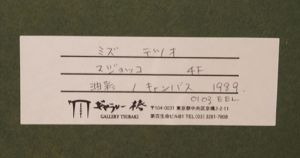 ミズ テツオ
スジョッコ 4F
油彩 / キャンバス 1989.
0103 EEL
ギャラリー 椿
GALLERY TSUBAKI
〒104-0031 東京都中央区京橋3-2-11
第百生命ビルB1 TEL (03) 3281-7808